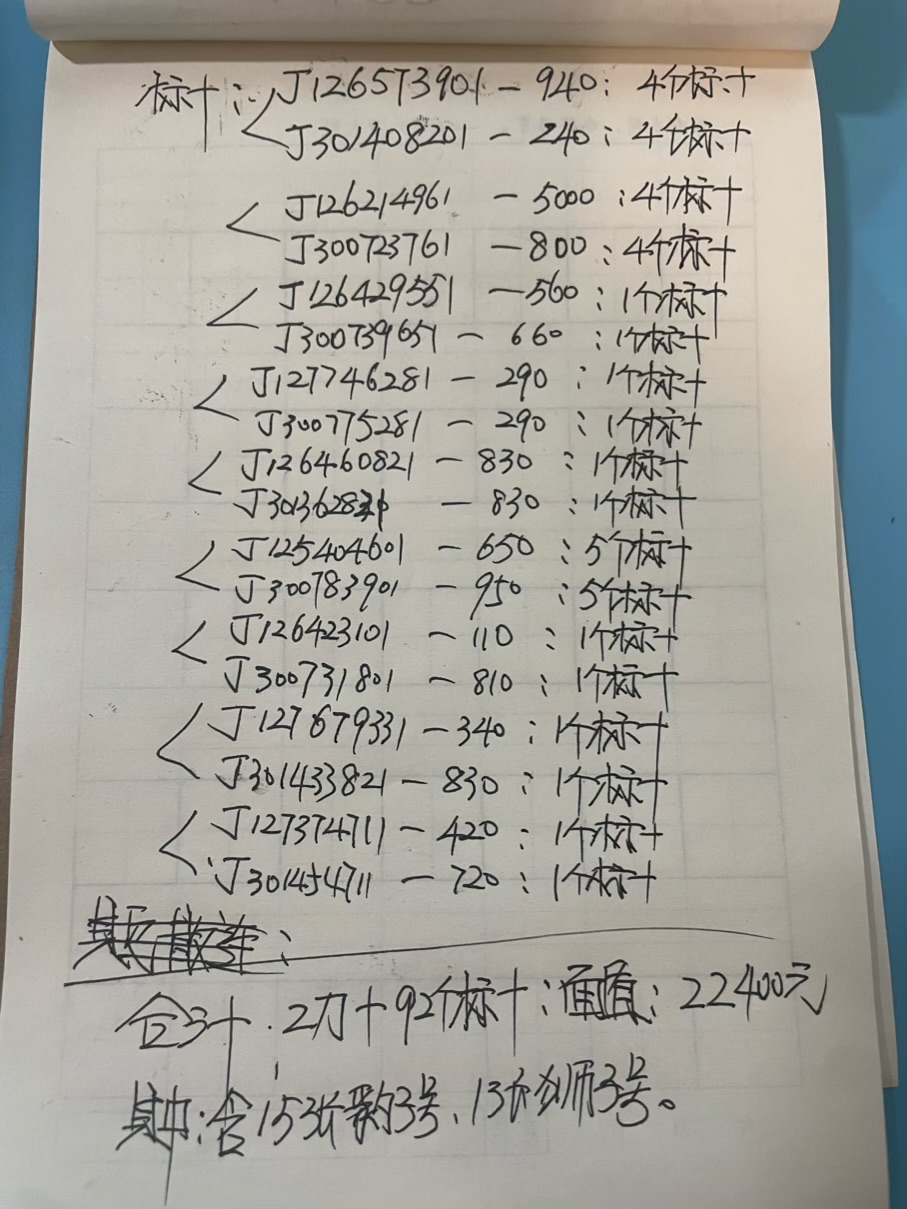 标十: J126573901 - 940: 4个标十
J301408201 - 240: 4个标十
J126214961 - 5000: 4个标十
J300723761 - 800: 4个标十
J126429551 - 560: 1个标十
J300739651 - 660: 1个标十
J127746281 - 290: 1个标十
J300775281 - 290: 1个标十
J126460821 - 830: 1个标十
- 830: 1个标十
J125404601 - 650: 5个标十
J300783901 - 950: 5个标十
J126423101 - 110: 1个标十
J300731801 - 810: 1个标十
J127679331 - 340: 1个标十
J301433821 - 830: 1个标十
J127374711 - 420: 1个标十
J301454711 - 720: 1个标十
合计: 2刀+92个标十: 面值: 22400元
其中: 含153张豹3号、13张狮3号。